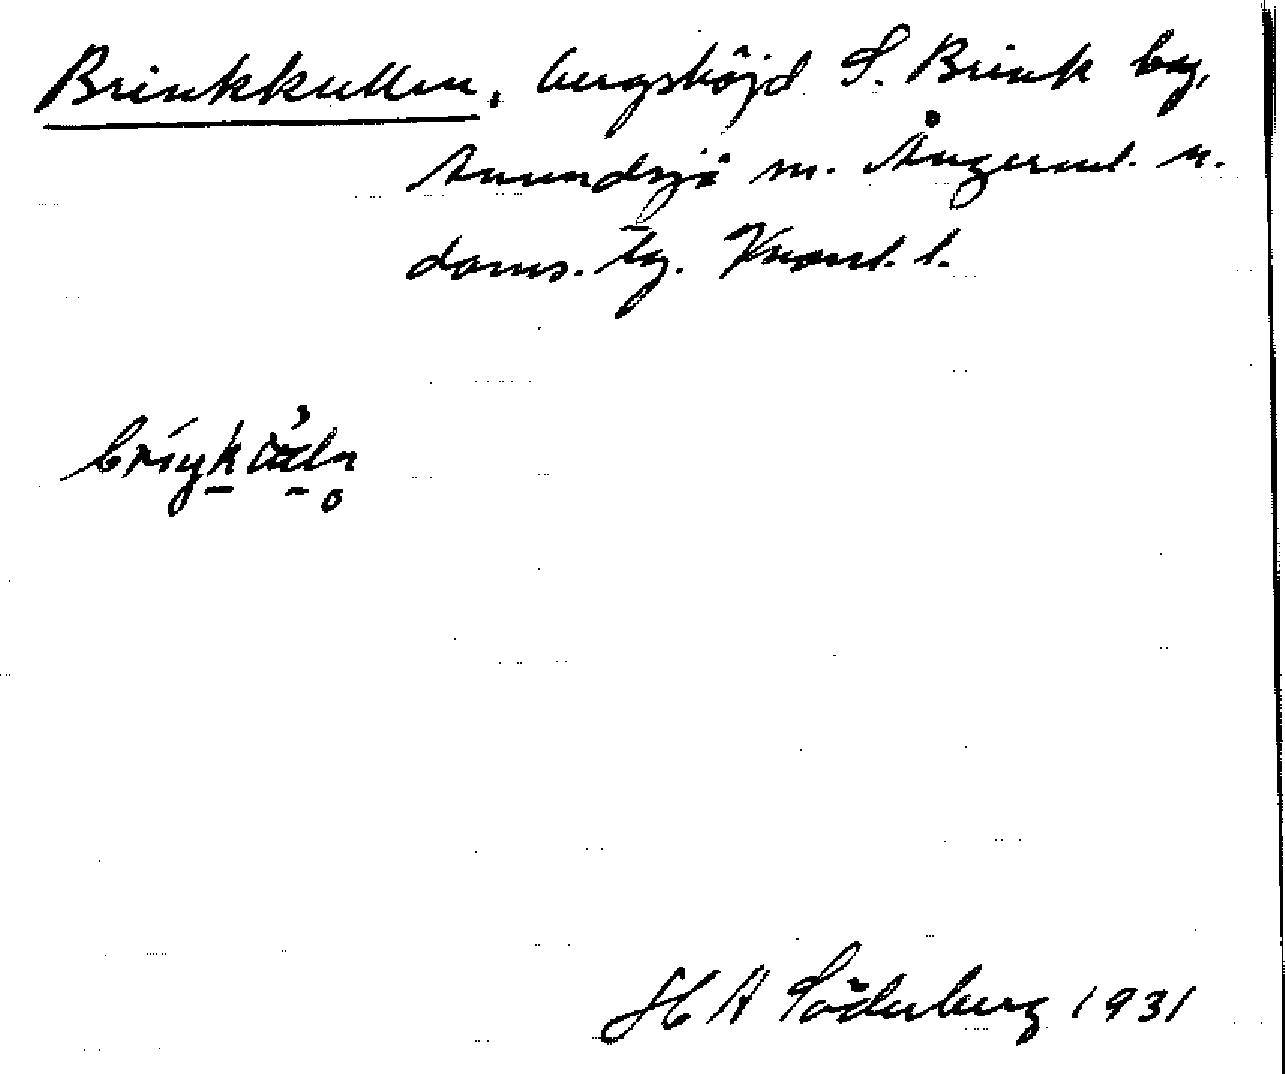 Brinkkullen, bergshöjd S. Brink by,
Anundsjö sn. Ångerml. n.
doms. tg. Västnl. l.
H A Söderberg 1931